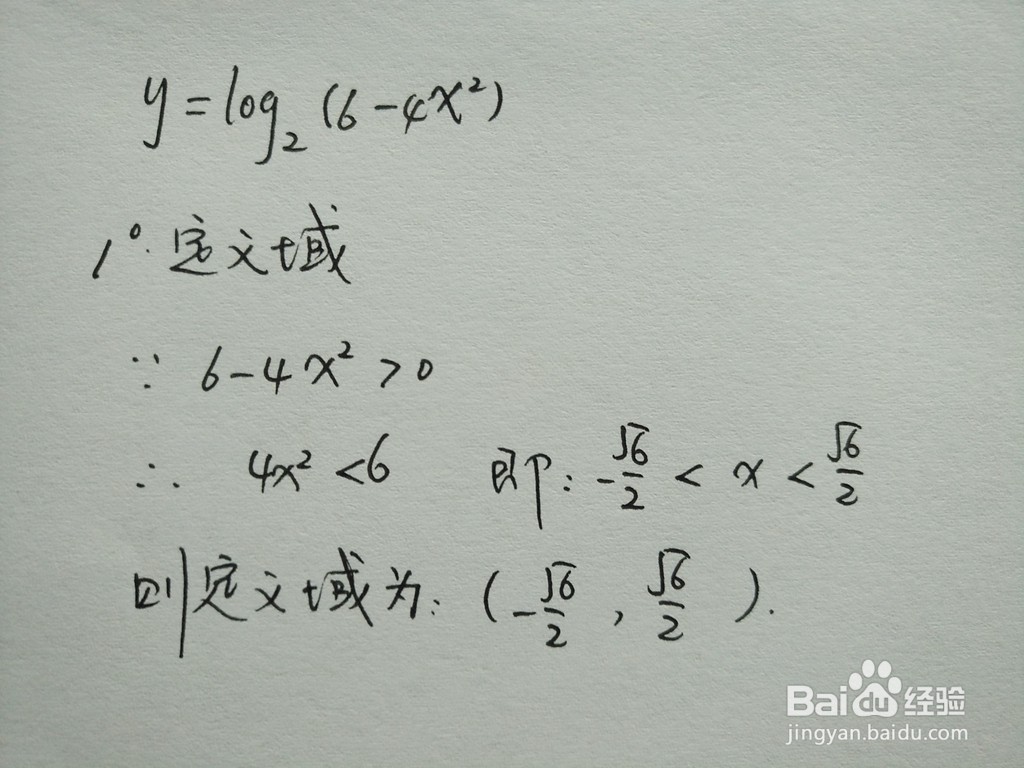 y=log₂(6-4x²)
1°.定义域
∵ 6-4x²>0
∴ 4x²<6 即:-√6/2<x<√6/2
则定义域为:(-√6/2,√6/2).
Bai du 经验
jingyan.baidu.com